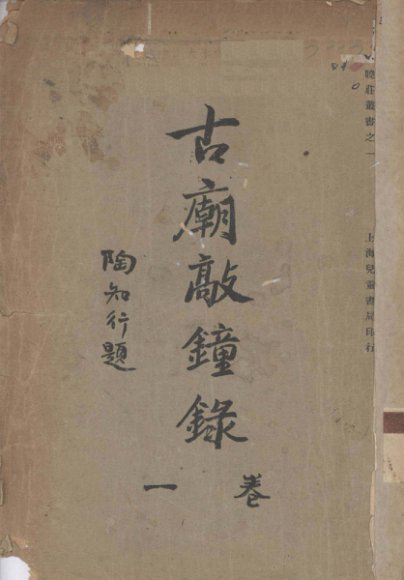 曉莊叢書之一
上海兒童書局印行
古廟敲鐘錄
卷一
陶知行題